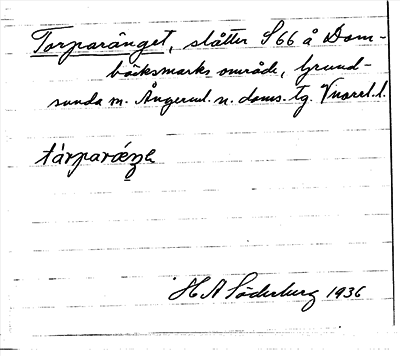 Torparänget, slåtter S66 å Dom-
bäcksmarks område, Grund-
sunda sn. Ångerml. n. doms. tg. Vnorrl. l.
tàrparǽŋe
H A Söderberg 1936